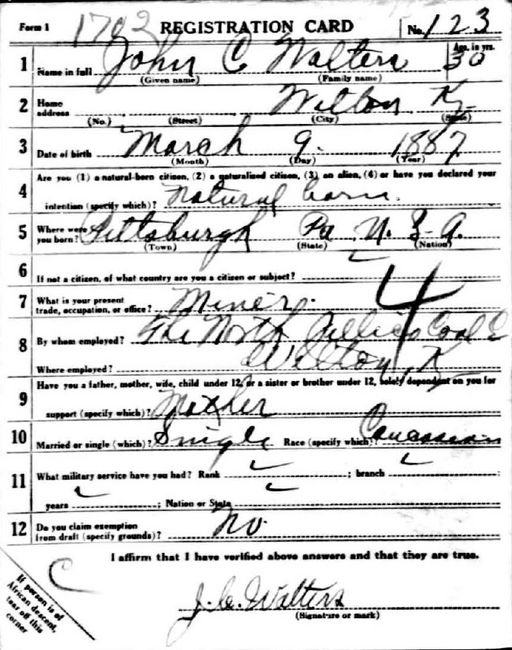 Form 1 1703 REGISTRATION CARD No. 123
1 Name in full John C Walters Age, in yrs. 30
(Given name) (Family name)
2 Home address Wilton Ky.
(No.) (Street) (City) (State)
3 Date of birth March 9 1887
(Month) (Day) (Year)
4 Are you (1) a natural-born citizen, (2) a naturalized citizen, (3) an alien, (4) or have you declared your
intention (specify which)? natural born.
5 Where were you born? Pittsburgh Pa U. S. A.
(Town) (State) (Nation)
6 If not a citizen, of what country are you a citizen or subject?
7 What is your present trade, occupation, or office? Miner. 4
8 By whom employed? The North Jellico Coal C
Where employed? Wilton, K
9 Have you a father, mother, wife, child under 12, or a sister or brother under 12, solely dependent on you for
support (specify which)? Mother
10 Married or single (which)? Single Race (specify which)? Caucassian
11 What military service have you had? Rank ; branch
years ; Nation or State
12 Do you claim exemption from draft (specify grounds)? No
I affirm that I have verified above answers and that they are true.
C
If person is of
African descent,
tear off this
corner
J. C. Walters
(Signature or mark)